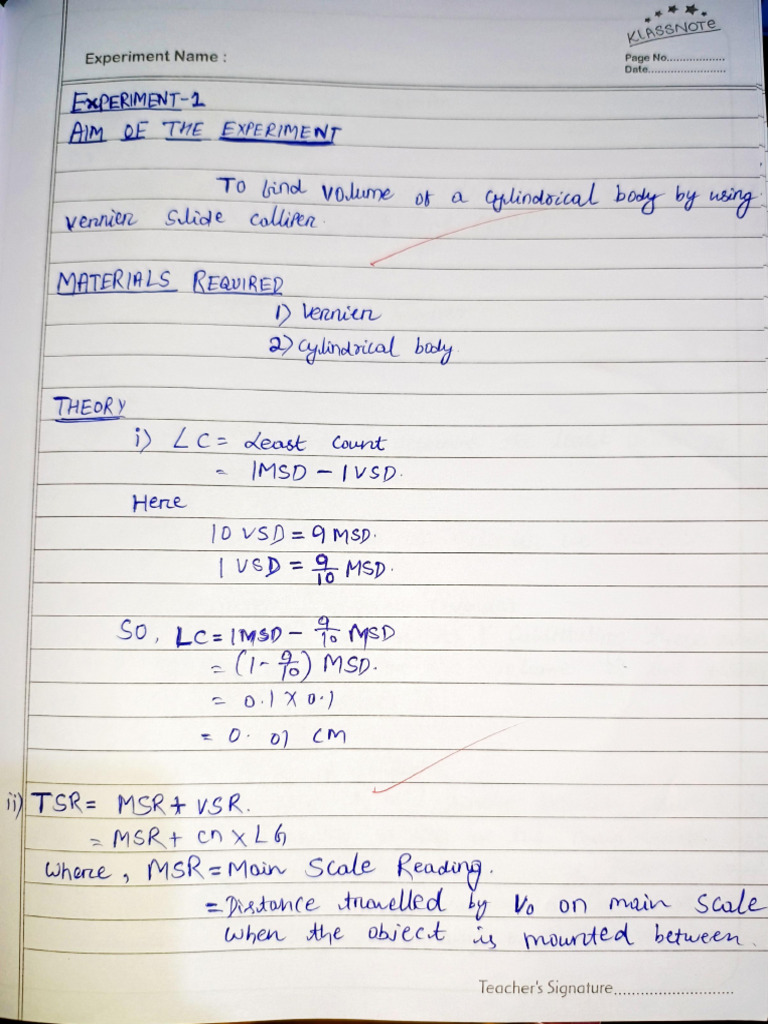 KLASSNOTE
Experiment Name :
Page No.................
Date........................
EXPERIMENT-1
AIM OF THE EXPERIMENT
To find volume of a cylindrical body by using
vernier slide calliper.
MATERIALS REQUIRED
1) Vernier
2) Cylindrical body.
THEORY
i) LC = Least Count
= 1MSD - 1VSD.
Here
10 VSD = 9 MSD.
1 VSD = 9/10 MSD.
So, LC = 1MSD - 9/10 MSD
= (1 - 9/10) MSD.
= 0.1 X 0.1
= 0.01 cm
ii) TSR = MSR + VSR.
= MSR + cn X LC
Where, MSR = Main Scale Reading.
= Distance travelled by V0 on main scale
when the object is mounted between.
Teacher's Signature..............................